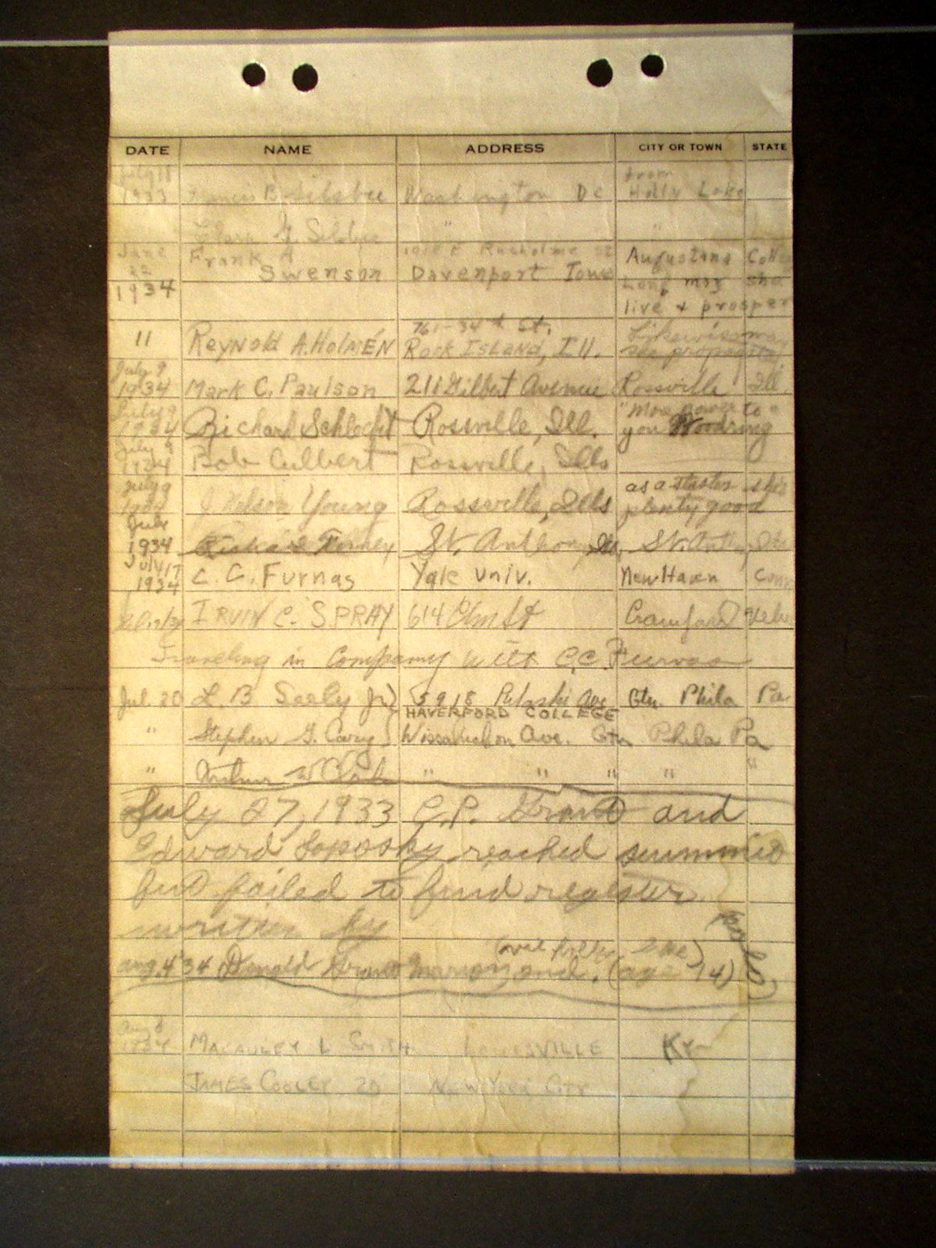 DATE NAME ADDRESS CITY OR TOWN STATE
July 18 from
1933 Francis B Silsbee Washington DC Holly Lake
Clara G. Silsbee " "
June 22 1934 Frank A Swenson Davenport Iowa Augustana Coll
Long may she
live & prosper
11 Reynold A. HOLMEN 761-34th St. Likewise may
ROCK ISLAND, Ill. she prosper
July 9 1934 Mark C. Paulson 211 Gilbert Avenue Rossville Ill.
July 9 1934 Richard Schlecht Rossville, Ill. "More power to"
you Woodring
July 9 1934 Bob Culbert Rossville, Ills
July 9 1934 J. Nelson Young Rossville, Ills as a starter she's
plenty good
July 1934 Richard St. Anthony, St. Anthony
July 17 1934 C. C. Furnas Yale Univ. New Haven Conn
IRVIN C. SPRAY 614 Elm St Crawford Nebr
Traveling in Company with C.C. Furnas
Jul. 20 L. B Seely Jr) 5918 Pulaski Ave Gtn. Phila Pa
HAVERFORD COLLEGE
" Stephen G. Cary) Wissahickon Ave. Gtn Phila Pa
" Arthur W Clark " " " " "
July 27, 1933 C.P. Grant and
Edward Soposky reached summit
but failed to find register.
written by
Aug. 4 '34 Donald Grant Marion, ind. (age 14)
Aug 8 1934 MACAULEY L SMITH LOUISVILLE Ky
JAMES COOLEY 20 NEW YORK CITY